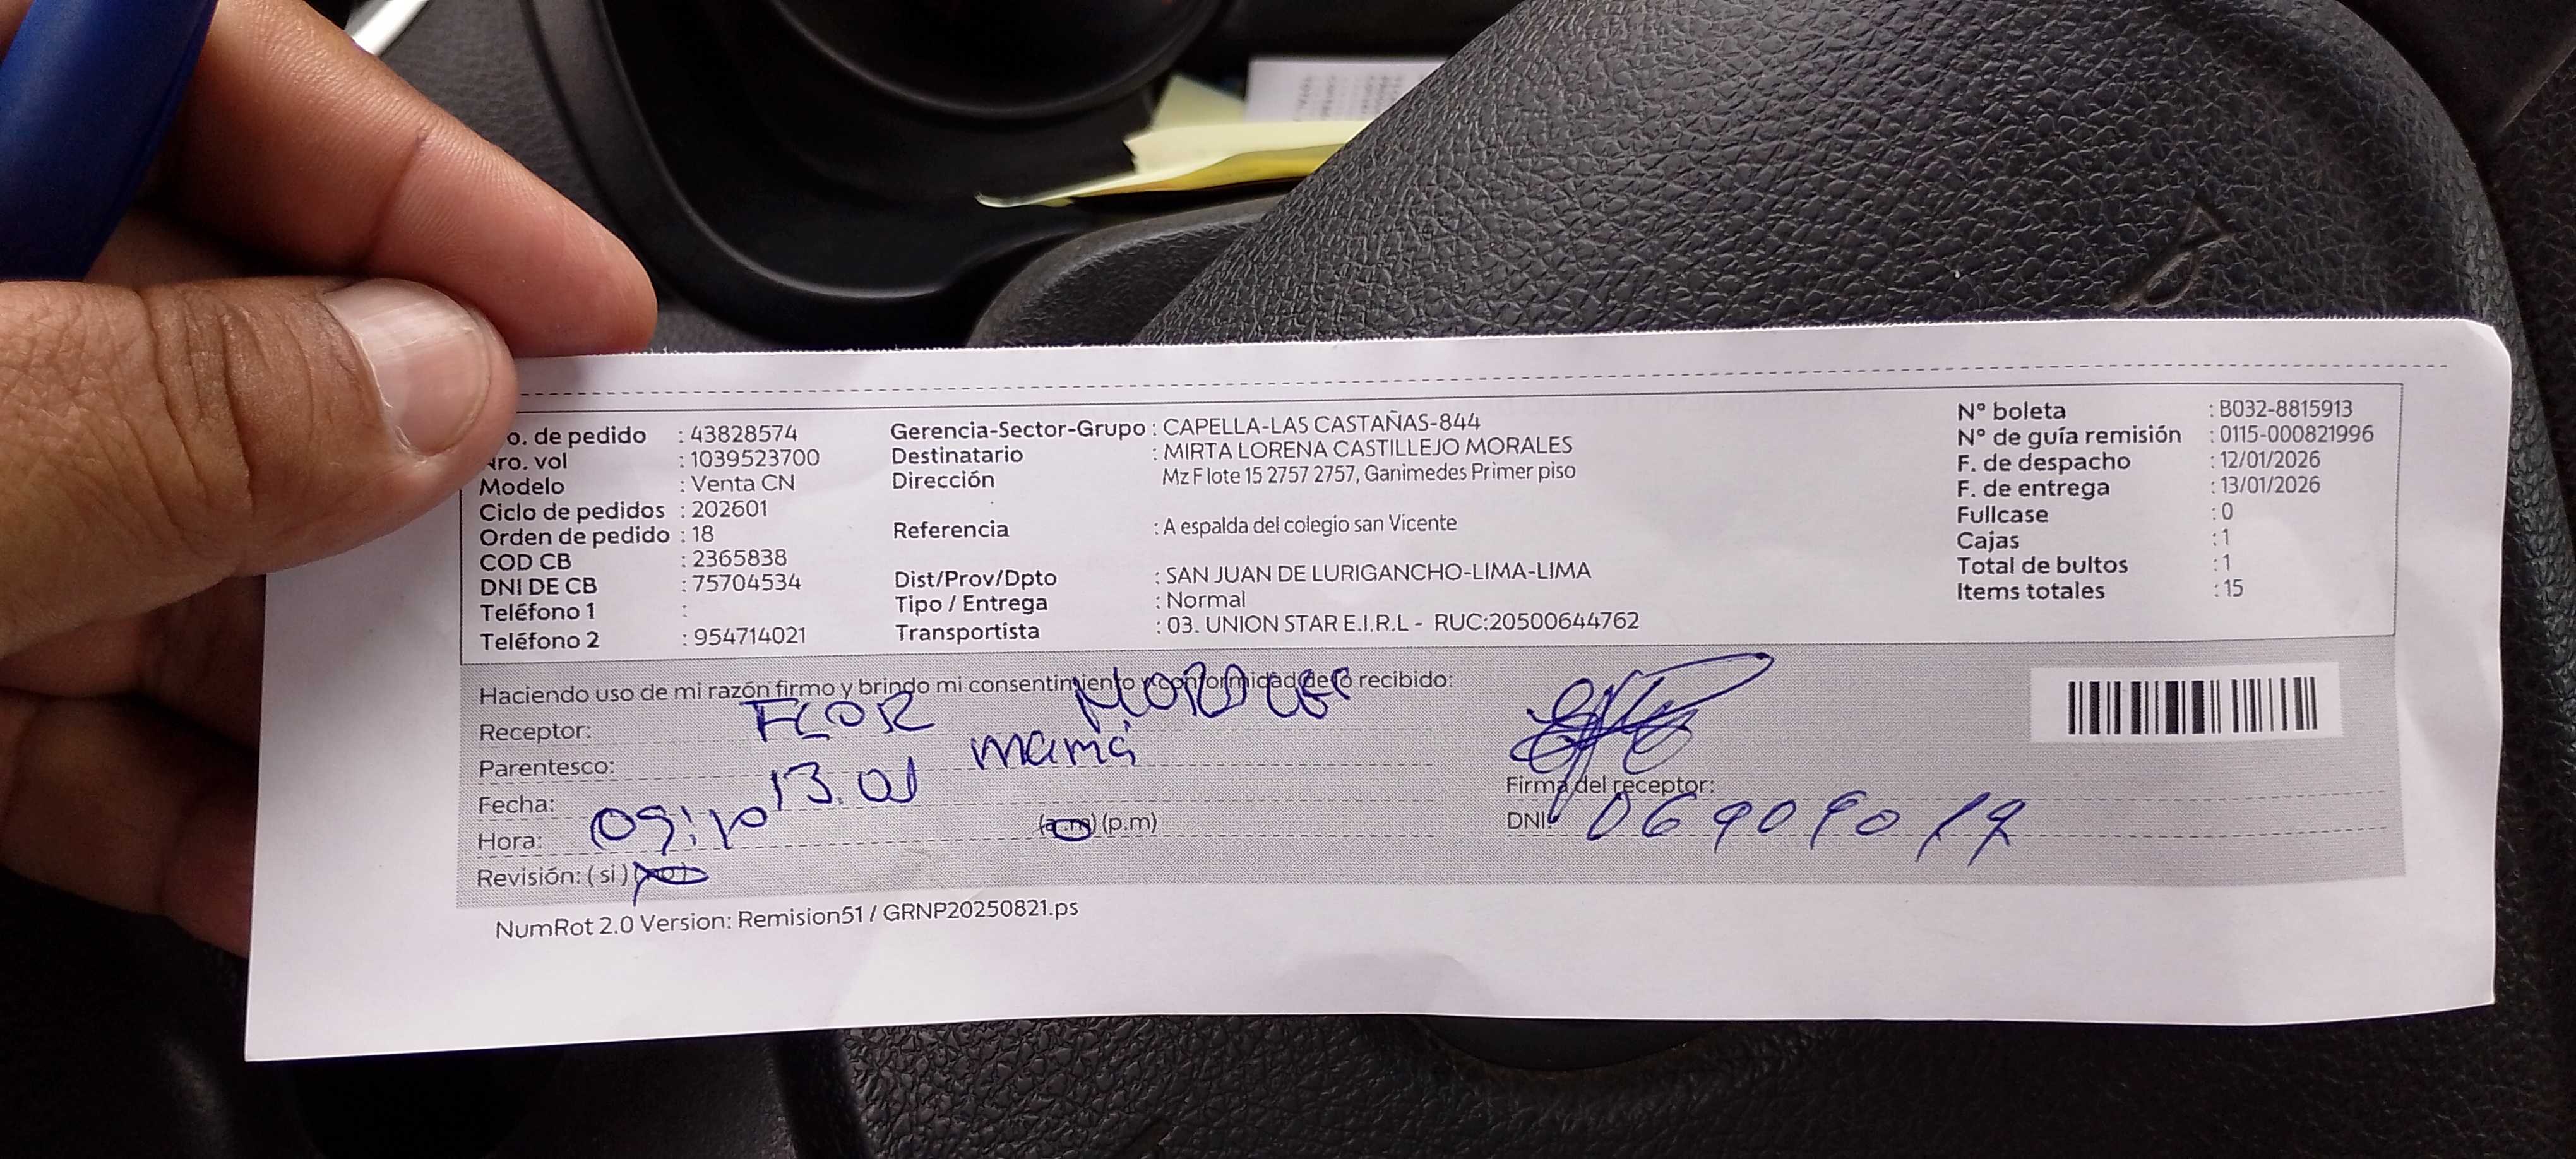 o. de pedido : 43828574
Nro. vol : 1039523700
Modelo : Venta CN
Ciclo de pedidos : 202601
Orden de pedido : 18
COD CB : 2365838
DNI DE CB : 75704534
Teléfono 1 :
Teléfono 2 : 954714021
Gerencia-Sector-Grupo : CAPELLA-LAS CASTAÑAS-844
Destinatario : MIRTA LORENA CASTILLEJO MORALES
Dirección Mz F lote 15 2757 2757, Ganimedes Primer piso
Referencia : A espalda del colegio san Vicente
Dist/Prov/Dpto : SAN JUAN DE LURIGANCHO-LIMA-LIMA
Tipo / Entrega : Normal
Transportista : 03. UNION STAR E.I.R.L - RUC:20500644762
N° boleta : B032-8815913
N° de guía remisión : 0115-000821996
F. de despacho : 12/01/2026
F. de entrega : 13/01/2026
Fullcase : 0
Cajas : 1
Total de bultos : 1
Items totales : 15
Haciendo uso de mi razón firmo y brindo mi consentimiento y conformidad de lo recibido:
Receptor: FLOR
Parentesco: mamá
Fecha: 13.01
Hora: (a.m) (p.m)
Revisión: ( si ) (no)
Firma del receptor:
DNI:
NumRot 2.0 Version: Remision51 / GRNP20250821.ps